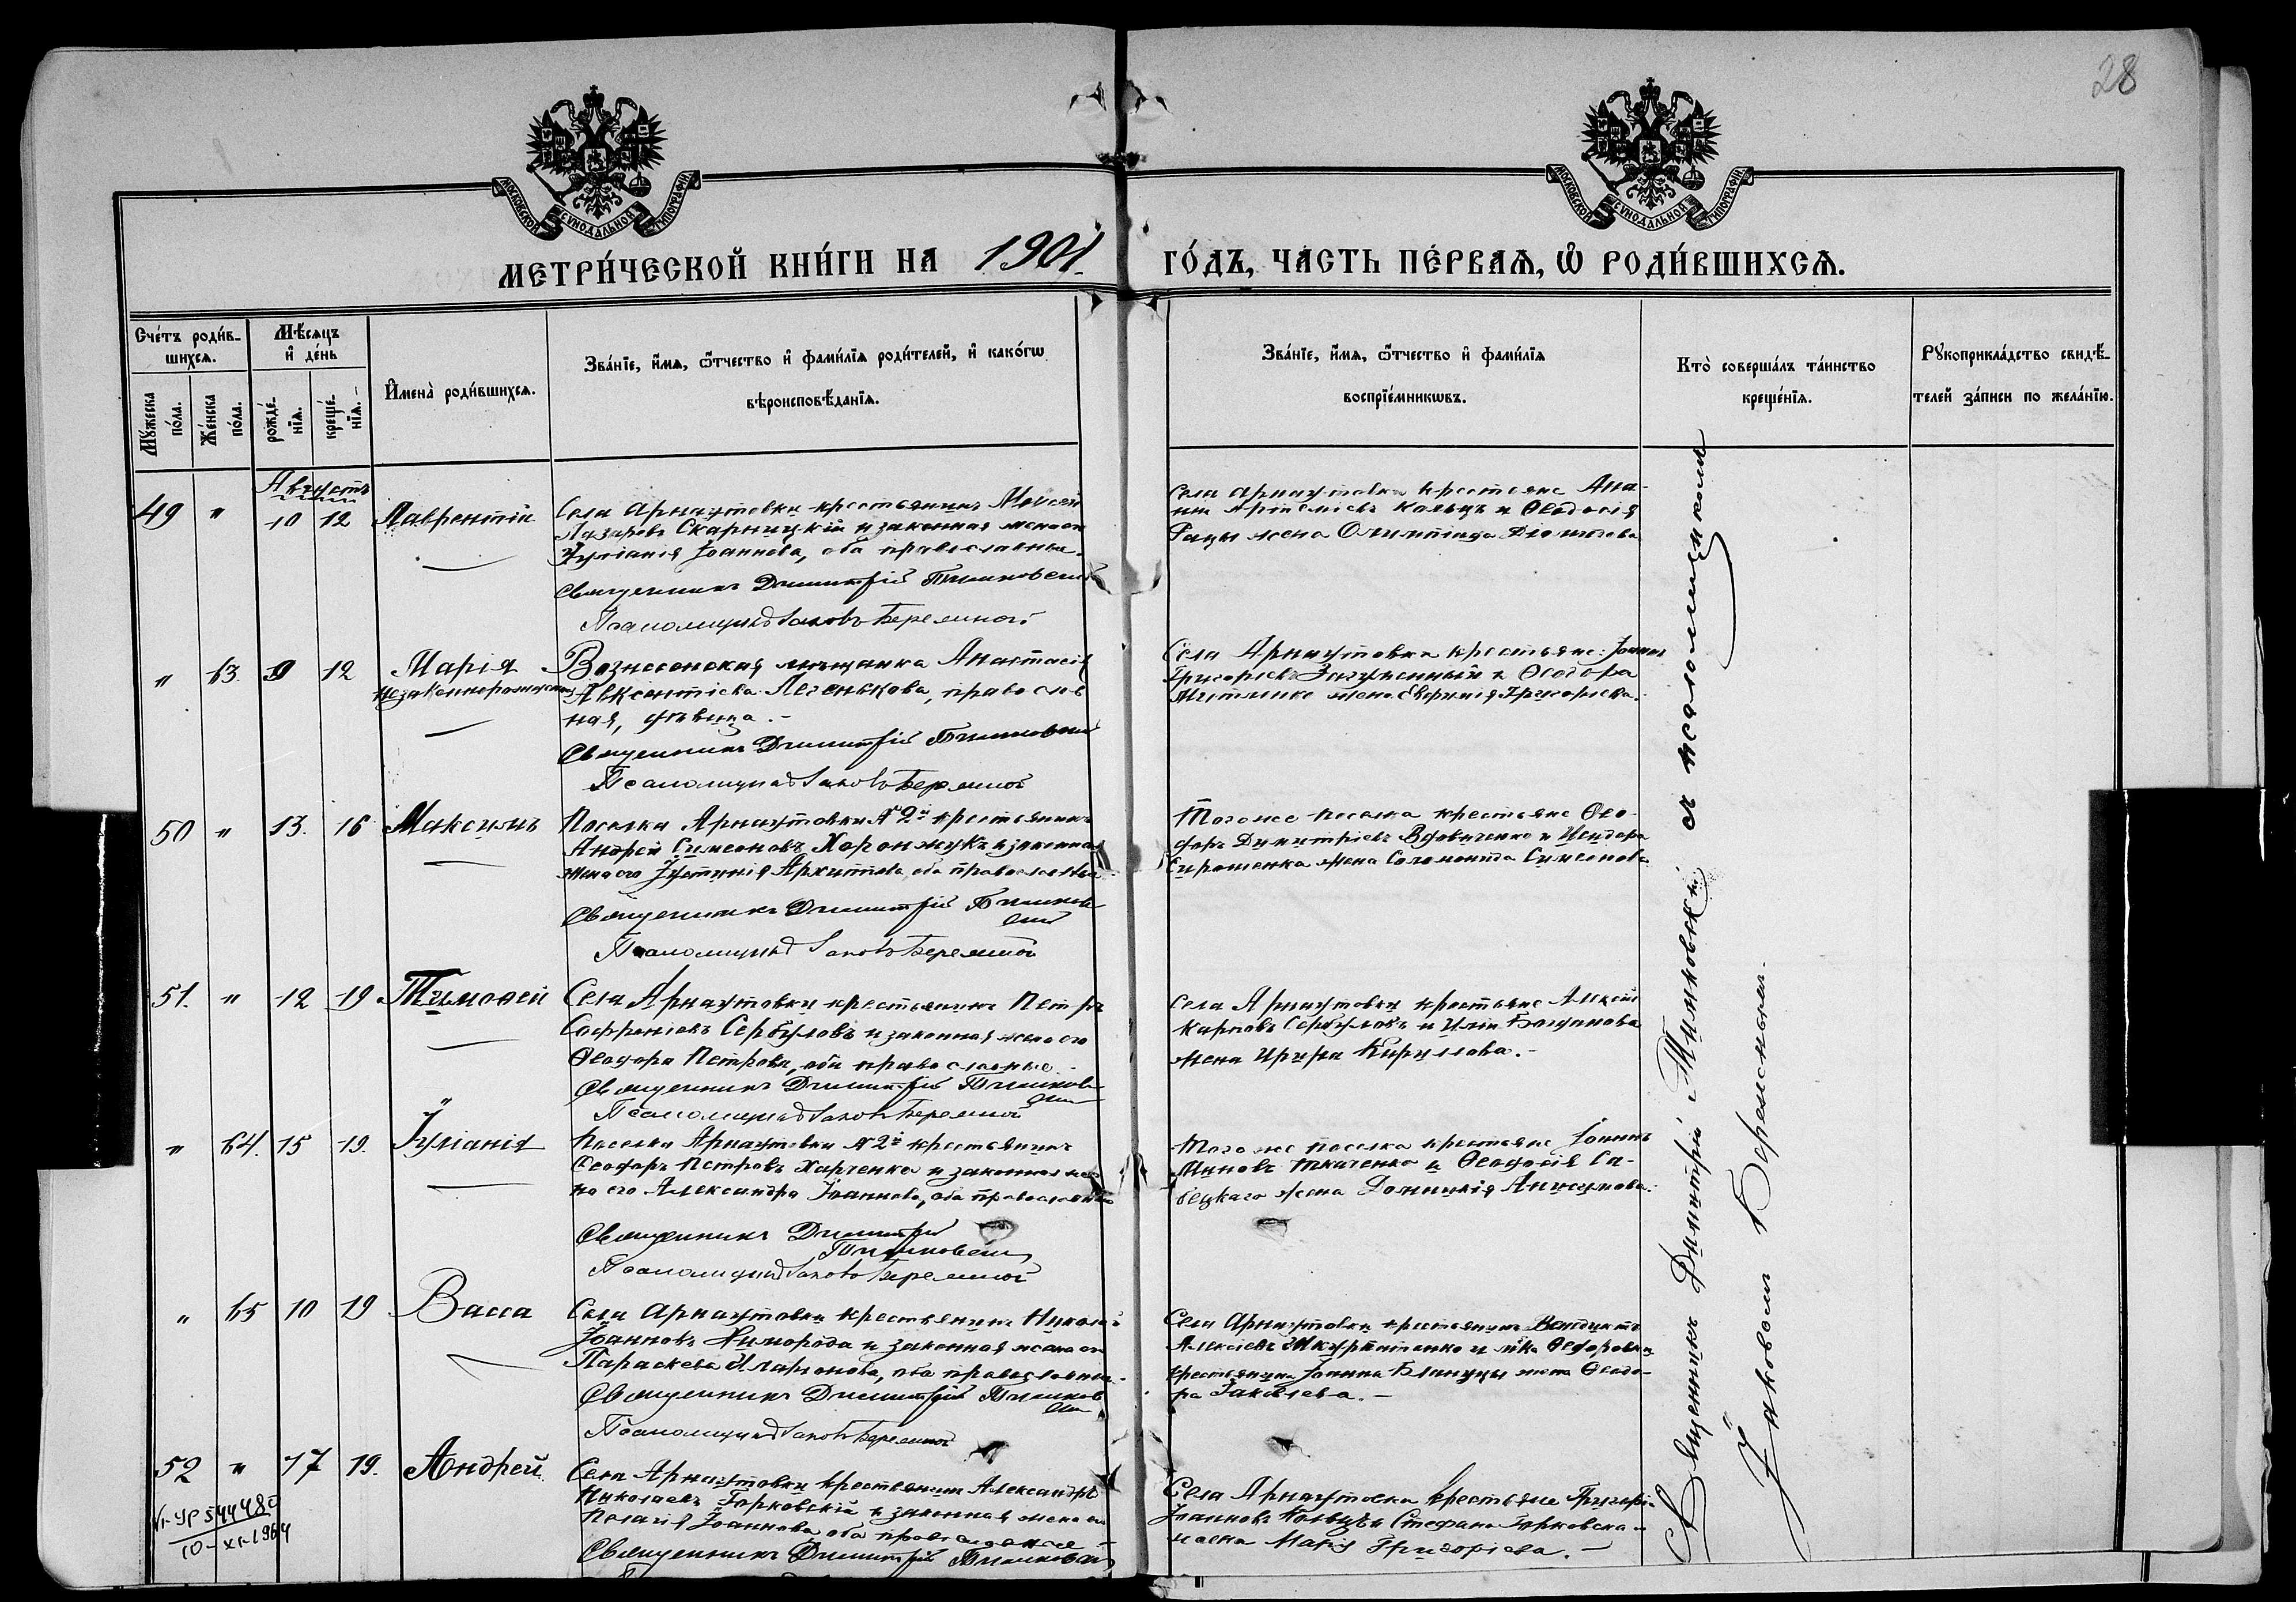 28
МОСКОВСКОЙ СѴНОДАЛЬНОЙ ТИПОГРАФІИ
МОСКОВСКОЙ СѴНОДАЛЬНОЙ ТИПОГРАФІИ
МЕТРИ́ЧЕСКОЙ КНИ́ГИ НА 1901. ГО́ДЪ, ЧА́СТЬ ПЕ́РВАѦ, Ѡ РОДИ́ВШИХСѦ.
Сче́тъ роди́в-
шихсѧ.
Мꙋ́жеска по́ла.
Же́нска по́ла.
Мѣ́сѧцъ
и҆ де́нь
рожде́-
нїѧ.
креще́-
нїѧ.
И҆мена̀ роди́вшихсѧ.
Зва́нїе, и҆́мѧ, ѻ҆́тчество и҆ фамѝлїѧ роди́телей, и҆ како́гѡ
вѣроисповѣ́данїѧ.
Зва́нїе, и҆́мѧ, ѻ҆́тчество и҆ фами́лїѧ
воспрїе́мникѡвъ.
Кто̀ соверша́лъ та́инство
креще́нїѧ.
Рꙋкоприкла́дство свидѣ́-
телей за́писи по жела́нїю.
Августъ
49 " 10 12 Лаврентій
Села Арнаутовки крестьянинъ Моисей
Лазаревъ Скарницкій и законная жена его
Іуліанія Іоаннова, оба православные.
Священникъ Димитрій
Псаломщикъ Іаковъ Бережной
Села Арнаутовки крестьяне Ана-
ній Артеміевъ Кольцъ и Ѳеодосія
жена Олимпіада
" 63. 9 12 Марія
незаконнорожденная
Вознесенская мѣщанка Анастасія
Авксентіева Легенькова, православ
ная, дѣвица.-
Священникъ Димитрій
Псаломщикъ Іаковъ Бережной
Села Арнаутовки крестьяне: Іоаннъ
Григорьевъ и Ѳеодора
жена Евфимія Григорьева.
50 " 13. 16 Максимъ
Поселка Арнаутовки № 2й крестьянинъ
Андрей Симеоновъ Харонжукъ и законная
жена его Іустинія Архиппова, оба православные.
Священникъ Димитрій
Псаломщикъ Іаковъ Бережной
Того же поселка крестьяне Ѳео-
доръ Димитріевъ Вдовиченко и Исидора
Сирошенка жена Соломонида Симеонова.
51. " 12 19 Тимоѳей
Села Арнаутовки крестьянинъ Петръ
Софроніевъ Сербуловъ и законная жена его
Ѳеодора Петрова, оба православные.
Священникъ Димитрій
Псаломщикъ Іаковъ Бережной
Села Арнаутовки крестьяне Алексѣй
Карповъ Сербуловъ и Иліи
жена Ирина Кириллова.-
" 64. 15 19. Іуліанія
Поселка Арнаутовки № 2й крестьянинъ
Ѳеодоръ Петровъ Харченко и законная же-
на его Александра Іоаннова, оба православные
Священникъ Димитрій
Псаломщикъ Іаковъ Бережной
Того же поселка крестьяне Іоаннъ
Миновъ Ткаченко и Ѳеодосія Са-
бецкаго жена Домникія Анисимова.
" 65 10 19 Васса
Села Арнаутовки крестьянинъ Николай
Іоанновъ Химорода и законная жена его
Параскева Иларіонова, оба православные.
Священникъ Димитрій
Псаломщикъ Іаковъ Бережной
Села Арнаутовки крестьянинъ
Алексіевъ и
крестьянина Іоанна жена Ѳеодо-
ра Іаковлева.-
52 " 17 19. Андрей
Села Арнаутовки крестьянинъ Александръ
Николаевъ Горковскій и законная жена его
Пелагія Іоаннова, оба православные
Священникъ Димитрій
Села Арнаутовка крестьяне Григорій
Іоанновъ Кольцъ и Стефана Горковска-
жена Марія Григоріева.-
УР 544480
10-XI-1964
Священникъ Димитрій съ псаломщикомъ
Іаковомъ Бережнымъ.